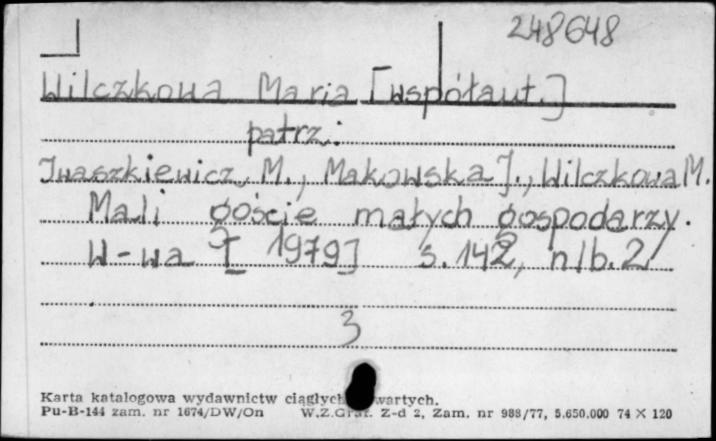 248648
Wilczkowa Maria [współaut.]
patrz:
Iwaszkiewicz M., Makowska J., Wilczkowa M.
Mali goście małych gospodarzy.
W-wa [1979] s. 142, nlb. 2
3
Karta katalogowa wydawnictw ciągłych wartych.
Pu-B-144 zam. nr 1674/DW/On W.Z.Graf. Z-d 2, Zam. nr 988/77, 5.650.000 74 X 120